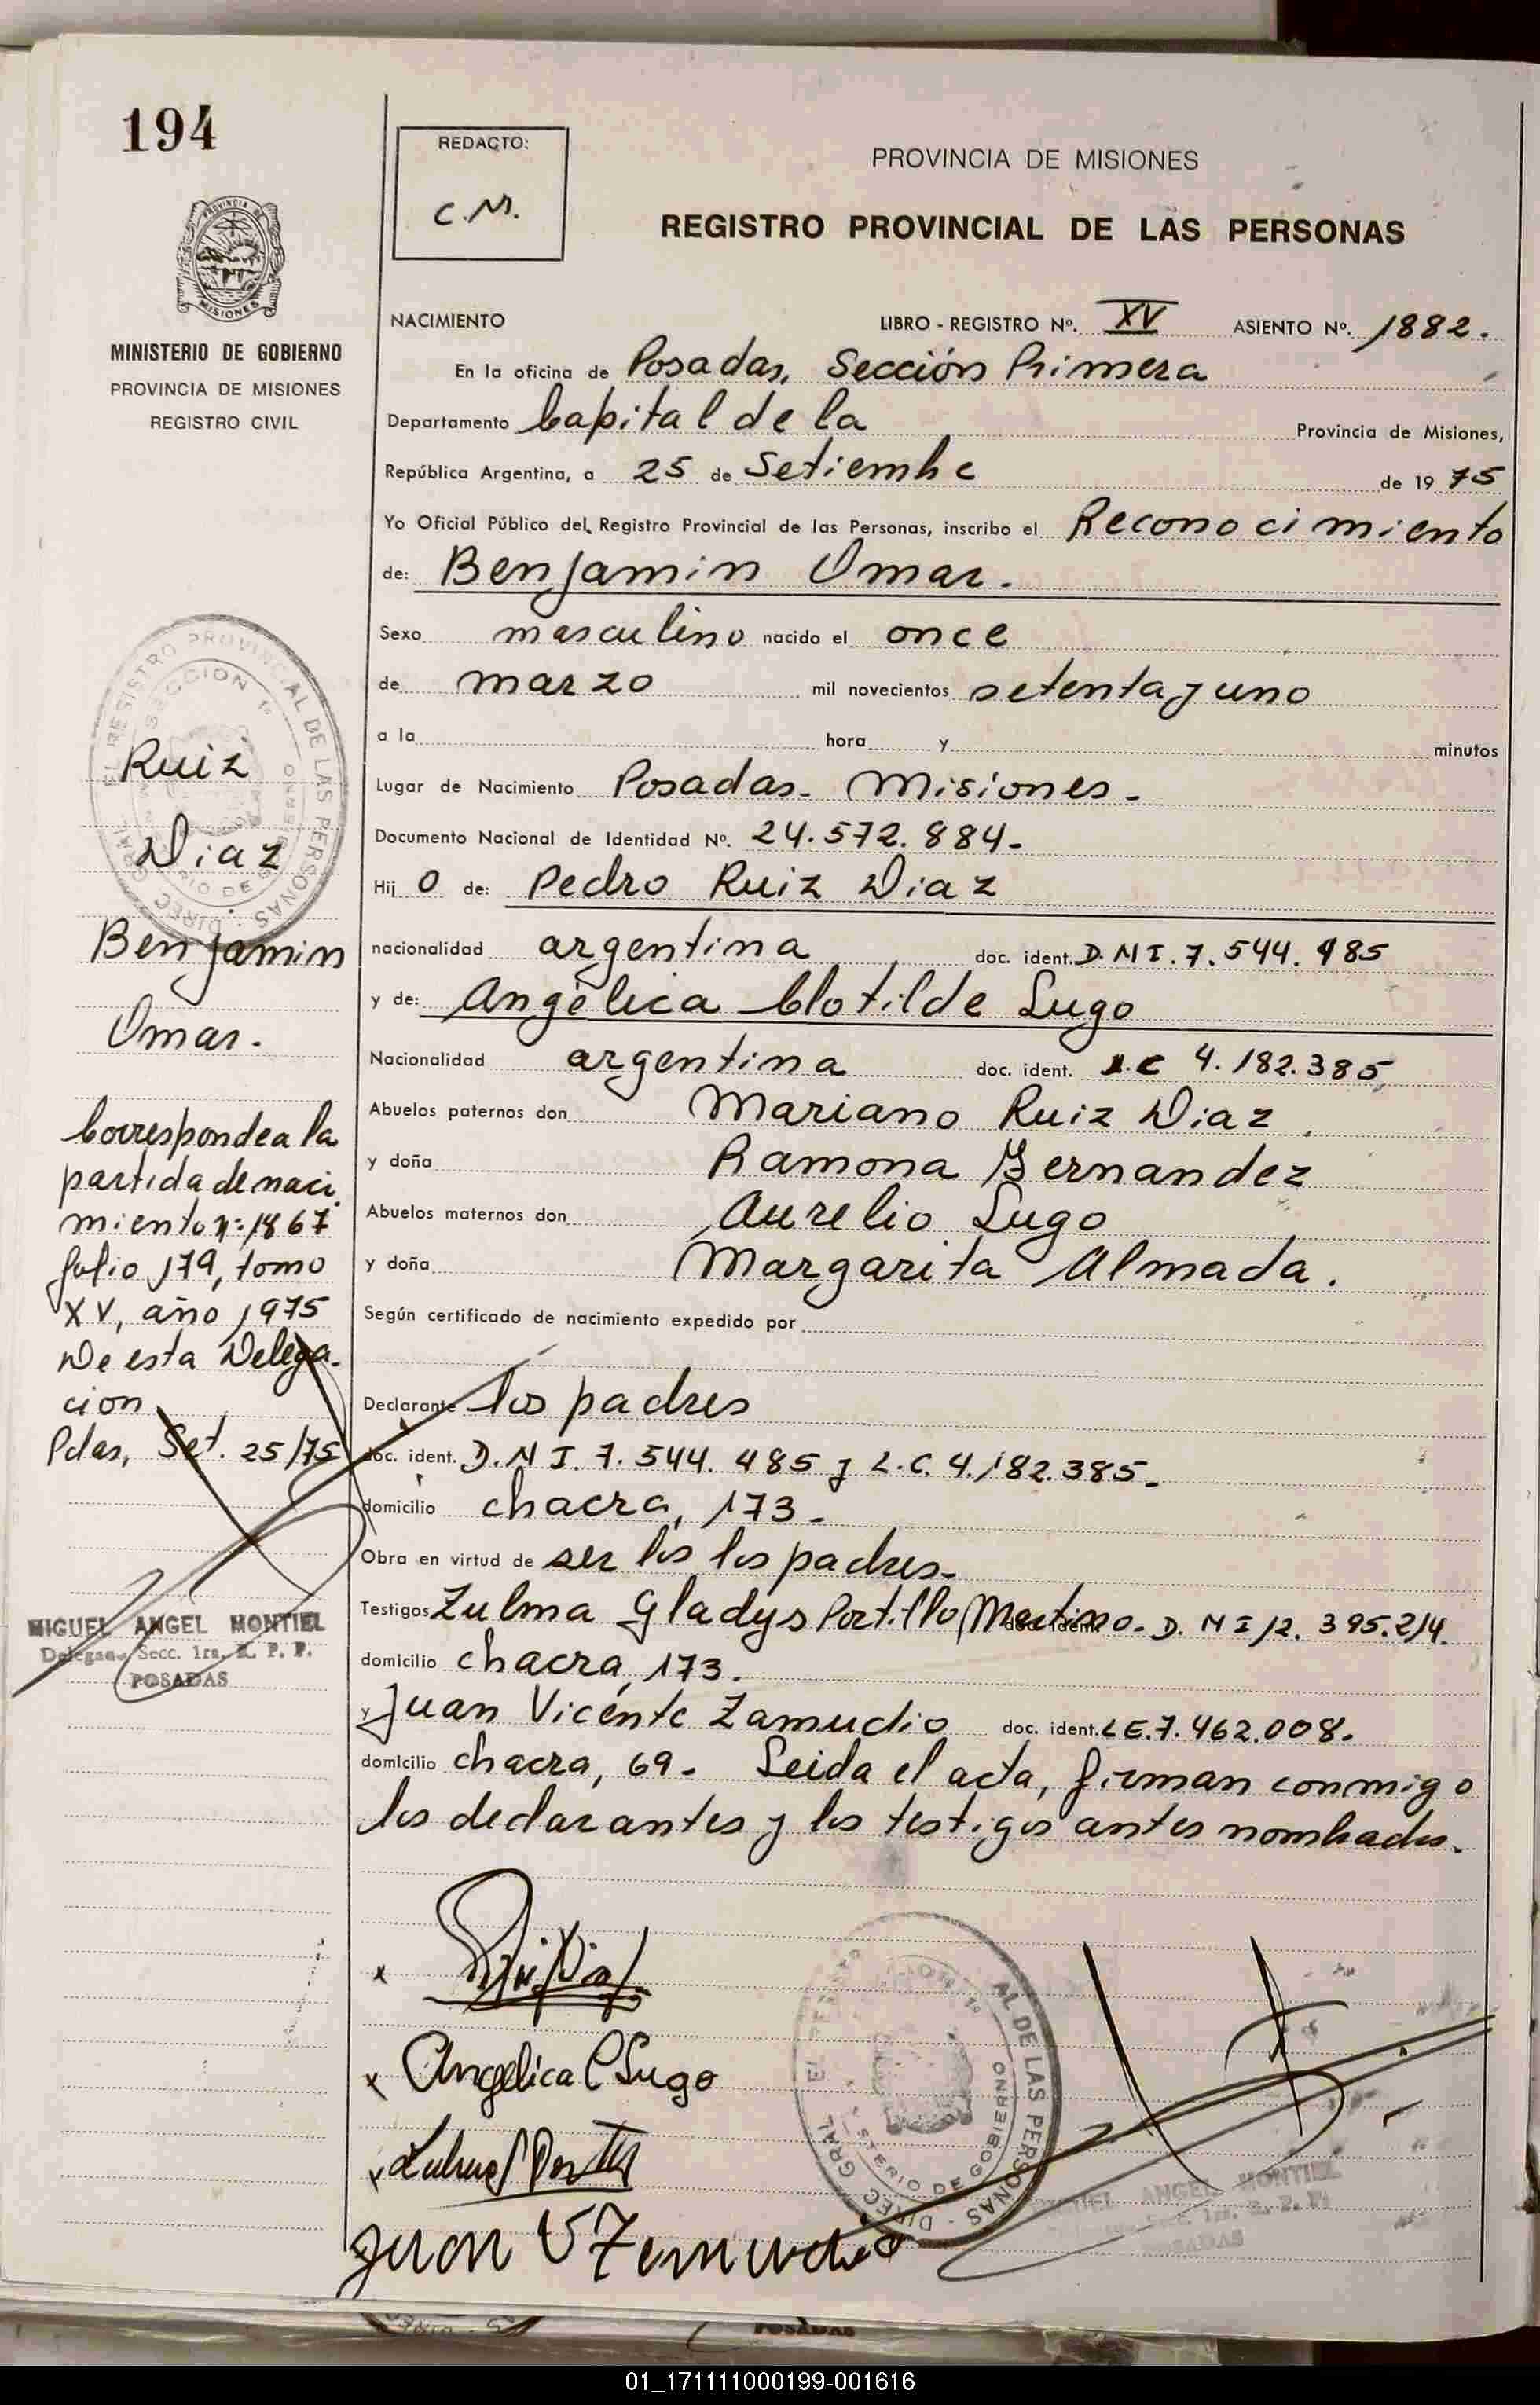 194
REDACTO:
C.M.
PROVINCIA DE MISIONES
REGISTRO PROVINCIAL DE LAS PERSONAS
MINISTERIO DE GOBIERNO
PROVINCIA DE MISIONES
REGISTRO CIVIL
NACIMIENTO LIBRO - REGISTRO Nº. XV ASIENTO Nº. 1882.
En la oficina de Posadas, Sección Primera
Departamento Capital de la Provincia de Misiones,
República Argentina, a 25 de Setiembre de 19 75
Yo Oficial Público del Registro Provincial de las Personas, inscribo el Reconocimiento
de: Benjamin Omar.
Sexo masculino nacido el once
de marzo mil novecientos setenta y uno
a la hora y minutos
Lugar de Nacimiento Posadas - Misiones -
Documento Nacional de Identidad Nº. 24.572.884-
Hij o de: Pedro Ruiz Diaz
nacionalidad argentina doc. ident. D.N I. 7.544.485
y de: Angélica Clotilde Lugo
Nacionalidad argentina doc. ident. L.C 4.182.385,
Abuelos paternos don Mariano Ruiz Diaz.
y doña Ramona Fernandez
Abuelos maternos don Aurelio Lugo
y doña Margarita Almada.
Según certificado de nacimiento expedido por
Declarante los padres
doc. ident. D.N I. 7.544.485 y L.C. 4.182.385-
domicilio chacra, 173-
Obra en virtud de ser los los padres-
Testigos Zulma Gladys Portillo Martino - D. N I 12.395.214.
domicilio chacra, 173.
y Juan Vicente Zamudio doc. ident. LE.7.462.008.
domicilio chacra, 69- Leida el acta, firman conmigo
los declarantes y los testigos antes nombrados.
Ruiz
Diaz
Benjamin
Omar.
Corresponde a la
partida de naci
miento nº: 1867
folio 179, tomo
XV, año 1975
De esta Delega-
cion
Pdas, Set. 25/75
MIGUEL ANGEL MONTIEL
Secc. 1ra. R. P. P.
POSADAS
x Ruiz Diaz
x Angelica C Lugo
x
Juan V Zamudio
REGISTRO PROVINCIAL DE LAS PERSONAS
SECCION 1º
MINISTERIO DE GOBIERNO
DIREC. GRAL.
AL DE LAS PERSONAS - DIREC GRAL
MINISTERIO DE GOBIERNO
MIGUEL ANGEL MONTIEL
Secc. 1ra. R. P. P.
POSADAS
POSADAS
01_171111000199-001616